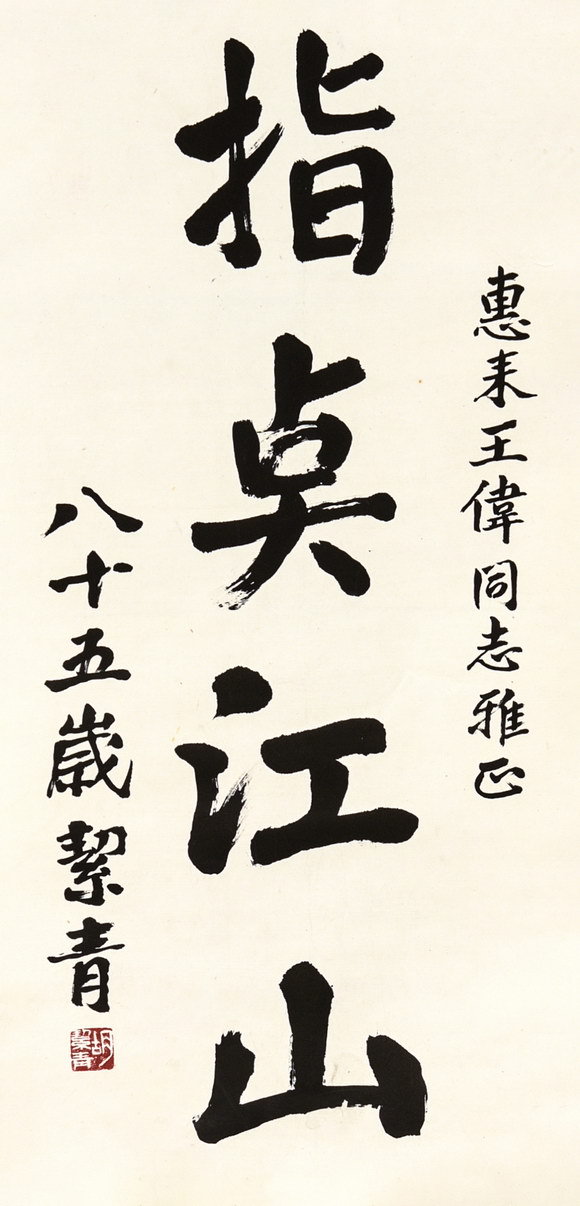 惠来王偉同志雅正
指奌江山
八十五歲絜青
胡絜青